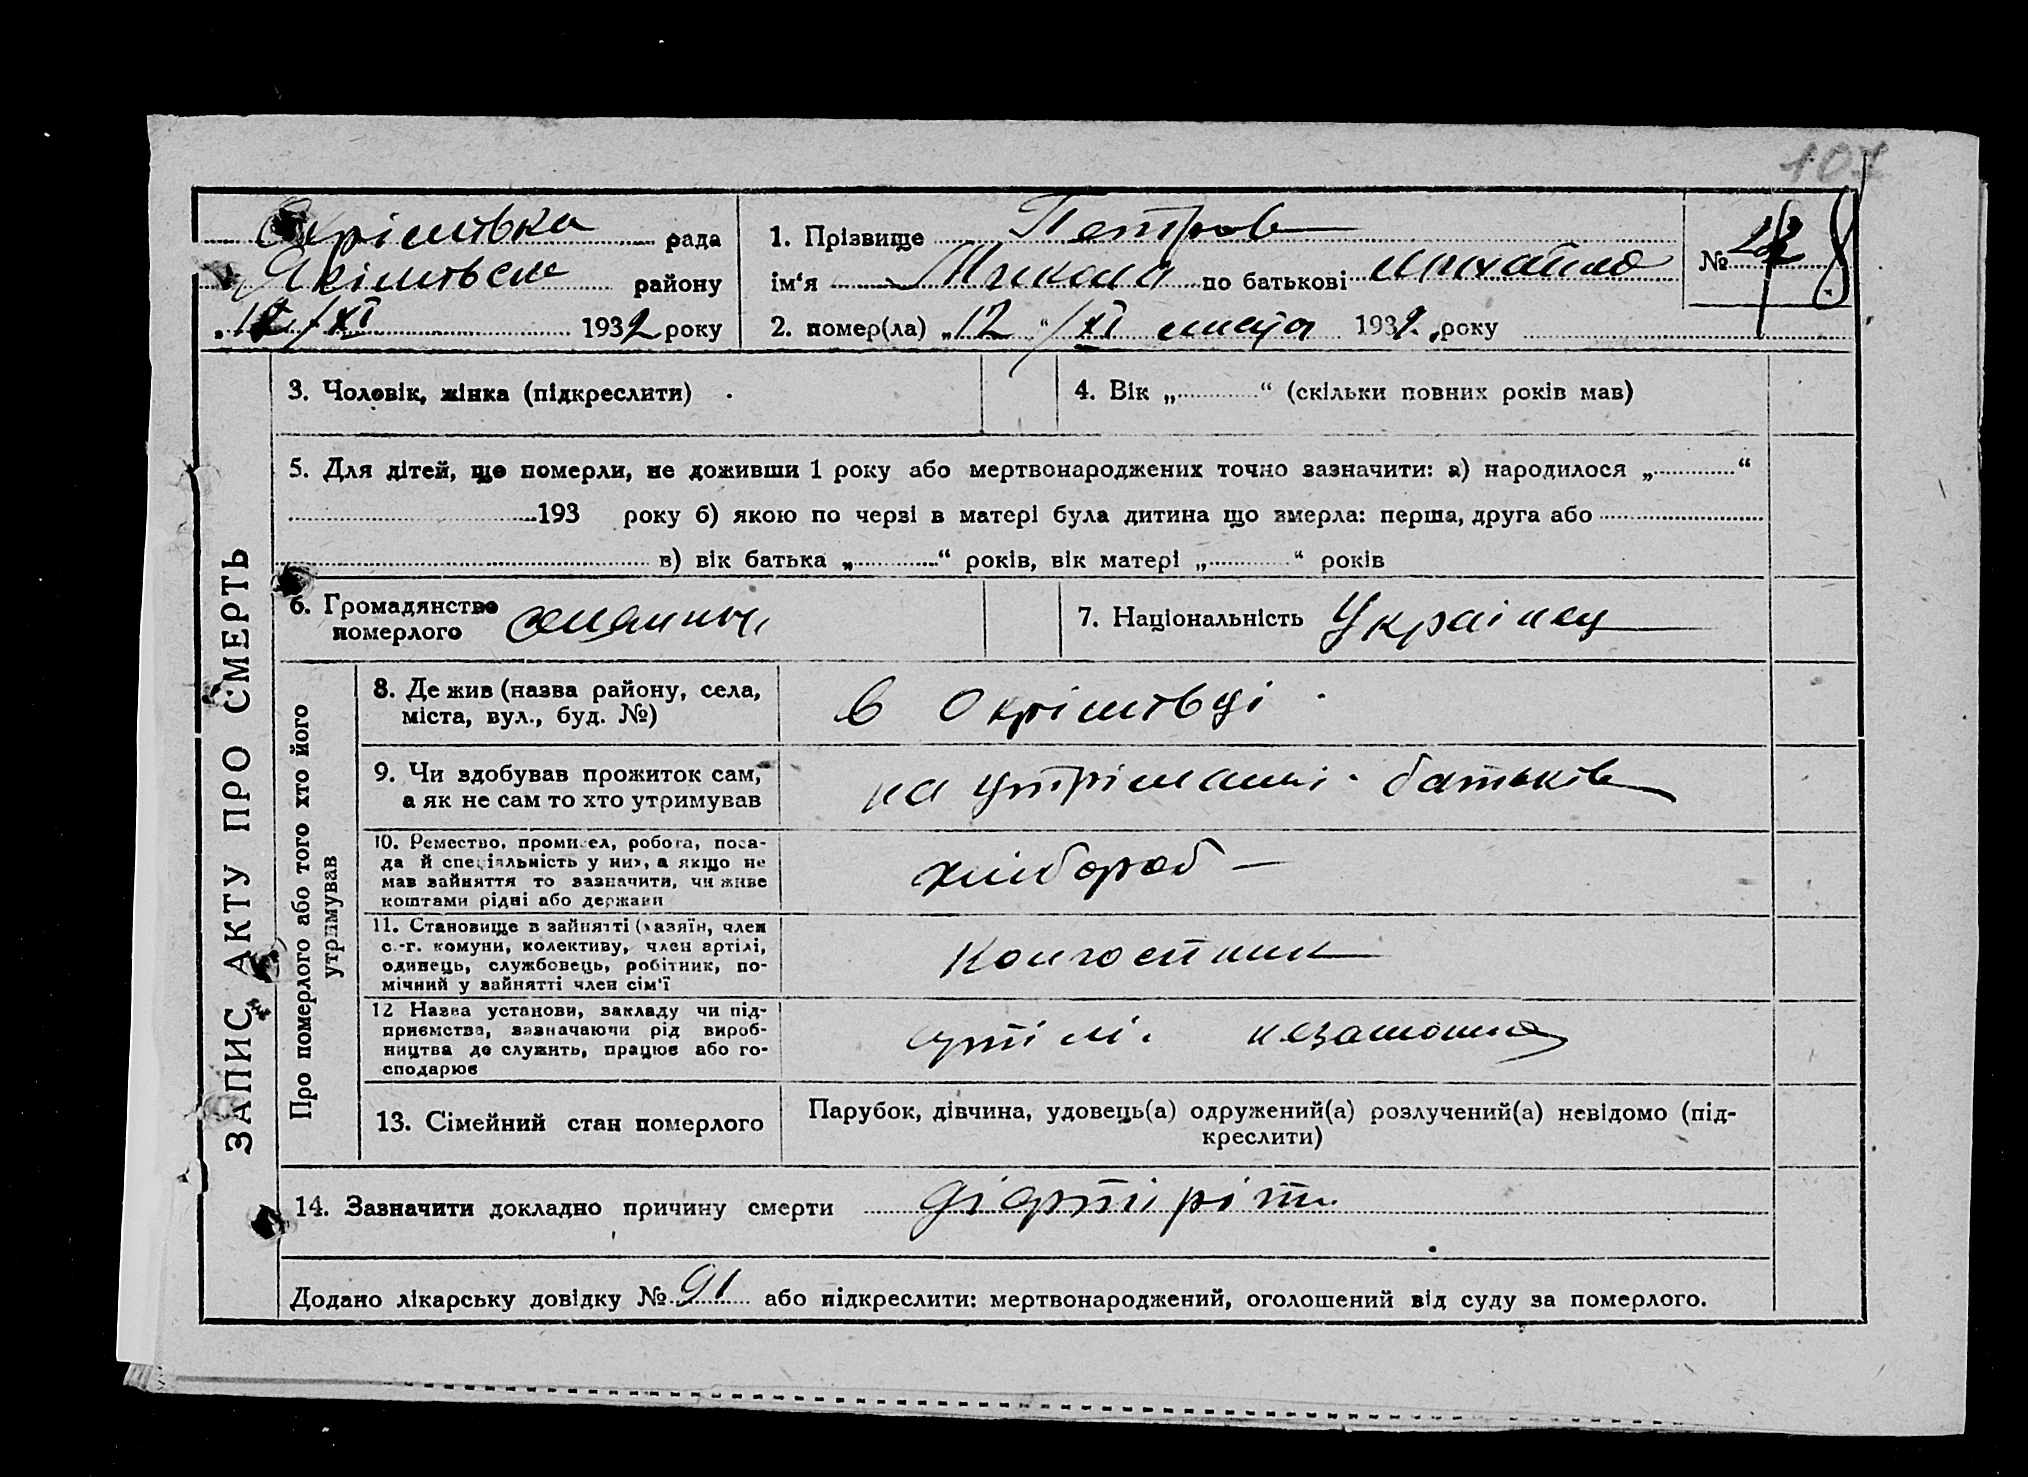 107
Охрімовка рада
Якімовськ району
„12/XI 1932 року
1. Прізвище Петров
ім‘я Микола по батькові михайло
2. помер(ла) „12“/XI місяця 1932 року
№ 8
ЗАПИС АКТУ ПРО СМЕРТЬ
3. Чоловік, жінка (підкреслити)
4. Вік „ “ (скільки повних років мав)
5. Для дітей, що померли, не доживши 1 року або мертвонароджених точно зазначити: а) народилося „ “
193 року б) якою по черзі в матері була дитина що вмерла: перша, друга або
в) вік батька „ “ років, вік матері „ “ років
6. Громадянство
померлого селянин
7. Національність Українец
Про померлого або того хто його
утримував
8. Де жив (назва району, села,
міста, вул., буд. №)
в Охрімовці
9. Чи здобував прожиток сам,
а як не сам то хто утримував
на утріманні батьків
10. Ремество, промисел, робота, поса-
да й спеціяльність у них, а якщо не
мав зайняття то зазначити, чи живе
коштами рідні або держави
хлібороб —
11. Становище в зайнятті (хазяїн, член
с.-г. комуни, колективу, член артілі,
одинець, службовець, робітник, по-
мічний у зайнятті член сім‘ї
Колгоспник
12 Назва установи, закладу чи під-
приємства, зазначаючи рід вироб-
ництва де служить, працює або го-
сподарює
артілі незаможна
13. Сімейний стан померлого
Парубок, дівчина, удовець(а) одружений(а) розлучений(а) невідомо (під-
креслити)
14. Зазначити докладно причину смерти діфтіріт
Додано лікарську довідку № 91 або підкреслити: мертвонароджений, оголошений від суду за померлого.